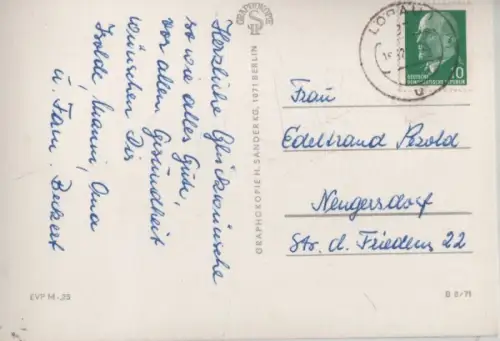 Herzliche Glückwünsche
so wie alles Gute,
vor allem Gesundheit
wünschen Dir
Isolde, Mami, Oma
u. Fam. Beckert
GRAPHOKOPIE
GRAPHOKOPIE H. SANDER KG, 1071 BERLIN
LÖBAU
DEUTSCHE
DEMOKRATISCHE REPUBLIK
10
Frau
Edeltraud
Neugersdorf
Str. d. Friedens 22
EVP M -,25
D 8/71